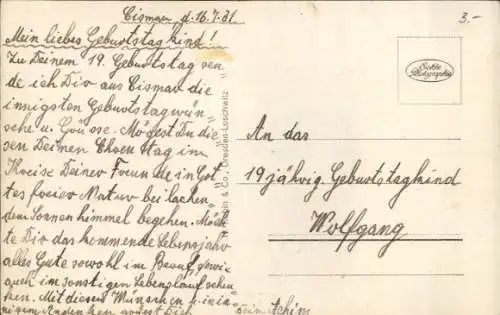 Cismar, d. 16.7.31.
Mein liebes Geburtstagkind!
Zu Deinem 19. Geburtstag sen
de ich Dir aus Cismar die
innigsten Geburtstagwün-
sche u. Grüsse. Mögest Du die
sen Deinen Ehren tag im
Kreise Deiner Freunde in Got
tes freier Natur bei lachen
dem Sonnenhimmel begehen. Möch
te Dir das kommende Lebensjahr
alles Gute sowohl im Beruf, sowie
auch im sonstigen Lebenslauf schen
ken. Mit diesen Wünschen u. in in
nigem Andenken grüsst Dich
Dein Achim
& Co., Dresden-Loschwitz
3,-
Echte
Photographie
An das
19 jährig. Geburtstagkind
Wolfgang